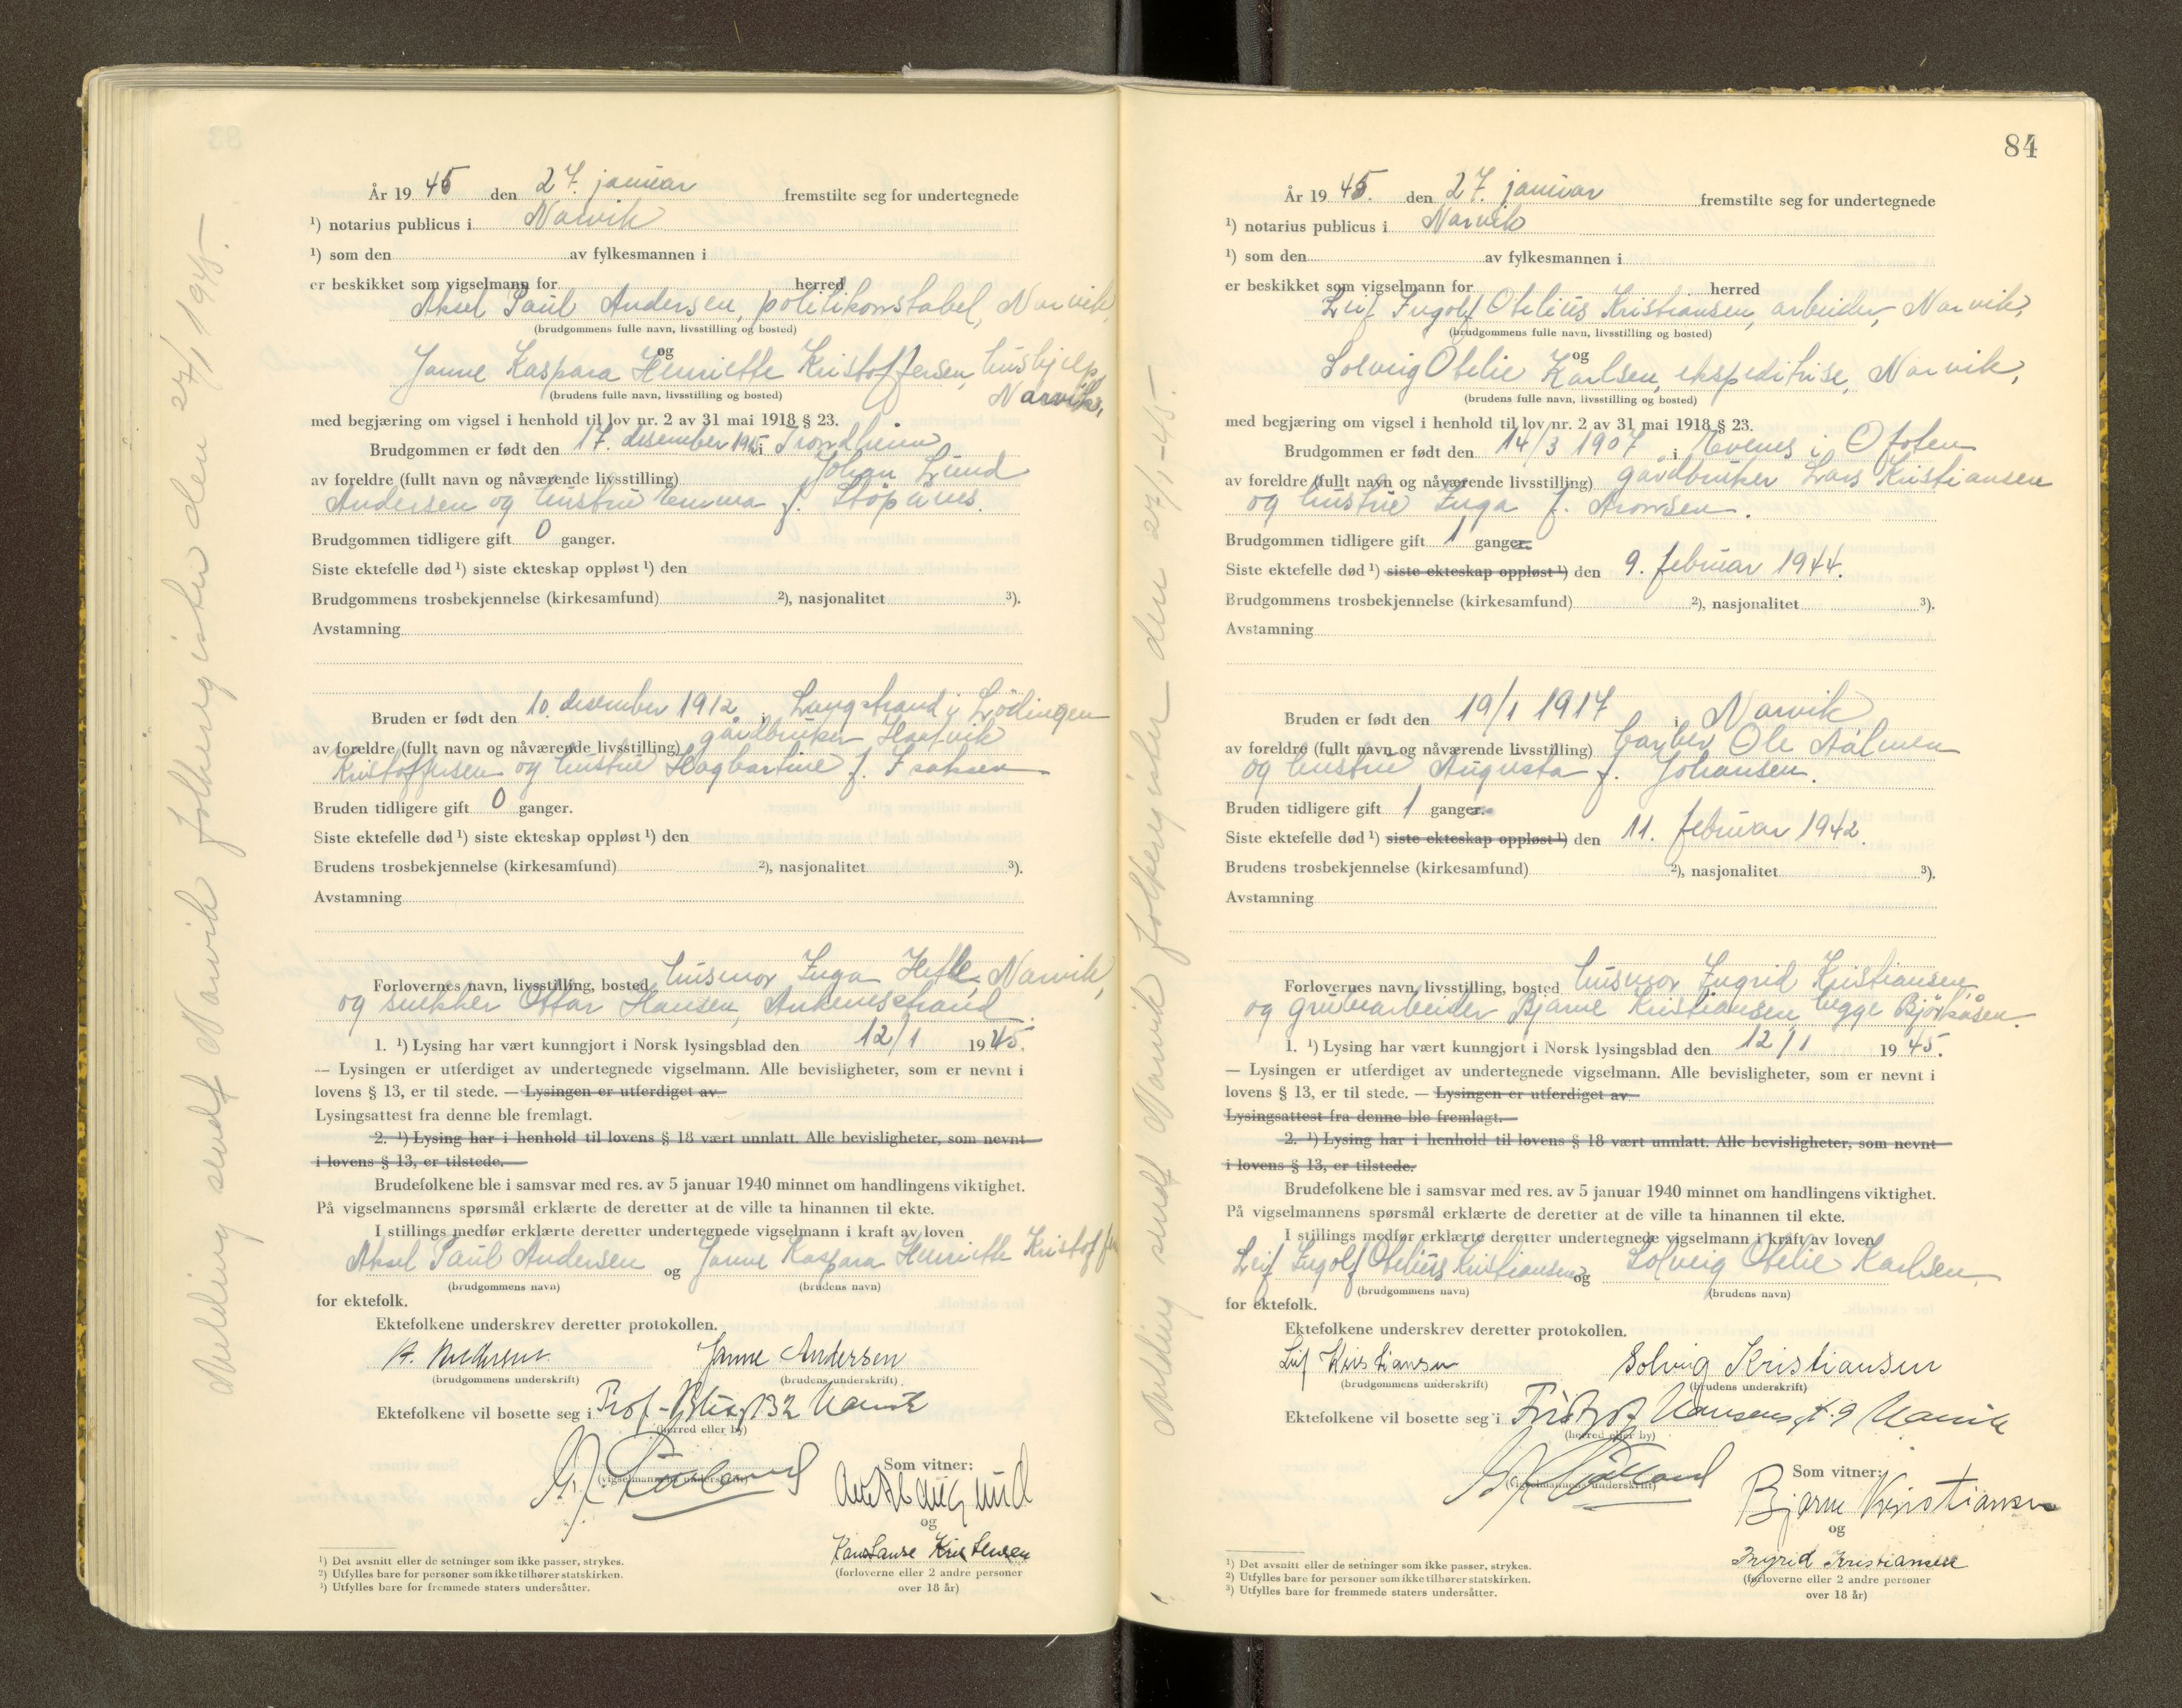 År 19 45 den 27. januar fremstilte seg for undertegnede
¹) notarius publicus i Narvik
¹) som den av fylkesmannen i
er beskikket som vigselmann for herred
Aksel Paul Andersen, politikonstabel, Narvik,
(brudgommens fulle navn, livsstilling og bosted)
og
Janne Kaspara Henriette Kristoffersen, hushjelp,
Narvik,
(brudens fulle navn, livsstilling og bosted)
med begjæring om vigsel i henhold til lov nr. 2 av 31 mai 1918 § 23.
Brudgommen er født den 17. desember 1915 i Trondheim
av foreldre (fullt navn og nåværende livsstilling) Johan Lund
Andersen og hustru Emma f.
Brudgommen tidligere gift 0 ganger.
Siste ektefelle død ¹) siste ekteskap oppløst ¹) den
Brudgommens trosbekjennelse (kirkesamfund) ²), nasjonalitet ³).
Avstamning
Bruden er født den 10. desember 1912 i Langstrand i Lødingen
av foreldre (fullt navn og nåværende livsstilling) gårdbruker
Kristoffersen og hustru Hagbartine f. Isaksen
Bruden tidligere gift 0 ganger.
Siste ektefelle død ¹) siste ekteskap oppløst ¹) den
Brudens trosbekjennelse (kirkesamfund) ²), nasjonalitet ³).
Avstamning
Forlovernes navn, livsstilling, bosted husmor Inga Hefle, Narvik,
og snekker Ottar Hansen, Ankenesstrand.
1. ¹) Lysing har vært kunngjort i Norsk lysingsblad den 12/1 1945.
— Lysingen er utferdiget av undertegnede vigselmann. Alle bevisligheter, som er nevnt i
lovens § 13, er til stede. — Lysingen er utferdiget av
Lysingsattest fra denne ble fremlagt.
2. ¹) Lysing har i henhold til lovens § 18 vært unnlatt. Alle bevisligheter, som nevnt
i lovens § 13, er tilstede.
Brudefolkene ble i samsvar med res. av 5 januar 1940 minnet om handlingens viktighet.
På vigselmannens spørsmål erklærte de deretter at de ville ta hinannen til ekte.
I stillings medfør erklærte deretter undertegnede vigselmann i kraft av loven
Aksel Paul Andersen og Janne Kaspara Henriette
(brudgommens navn) (brudens navn)
for ektefolk.
Ektefolkene underskrev deretter protokollen.
A. Andersen Janne Andersen
(brudgommens underskrift) (brudens underskrift)
Ektefolkene vil bosette seg i 132 Narvik
(herred eller by)
(vigselmannens underskrift)
Som vitner:
og
Konstanse Kristensen
(forloverne eller 2 andre personer
over 18 år)
¹) Det avsnitt eller de setninger som ikke passer, strykes.
²) Utfylles bare for personer som ikke tilhører statskirken.
³) Utfylles bare for fremmede staters undersåtter.
Melding sendt Narvik folkeregister den 27/1 1945-
84
År 19 45. den 27. januar fremstilte seg for undertegnede
¹) notarius publicus i Narvik
¹) som den av fylkesmannen i
er beskikket som vigselmann for herred
Leif Ingolf Otelius Kristiansen, arbeider, Narvik,
(brudgommens fulle navn, livsstilling og bosted)
og
Solveig Otelie Karlsen, ekspeditrise, Narvik,
(brudens fulle navn, livsstilling og bosted)
med begjæring om vigsel i henhold til lov nr. 2 av 31 mai 1918 § 23.
Brudgommen er født den 14/3 1907 i Evenes i Ofoten
av foreldre (fullt navn og nåværende livsstilling) gårdbruker Lars Kristiansen
og hustru Inga f. Aronsen.
Brudgommen tidligere gift 1 ganger.
Siste ektefelle død ¹) siste ekteskap oppløst ¹) den 9. februar 1944.
Brudgommens trosbekjennelse (kirkesamfund) ²), nasjonalitet ³).
Avstamning
Bruden er født den 19/1 1917 i Narvik
av foreldre (fullt navn og nåværende livsstilling) barber Ole
og hustru Augusta f. Johansen.
Bruden tidligere gift 1 ganger.
Siste ektefelle død ¹) siste ekteskap oppløst ¹) den 11. februar 1942.
Brudens trosbekjennelse (kirkesamfund) ²), nasjonalitet ³).
Avstamning
Forlovernes navn, livsstilling, bosted husmor Ingrid Kristiansen,
og gruvearbeider Bjarne Kristiansen begge Bjørkåsen.
1. ¹) Lysing har vært kunngjort i Norsk lysingsblad den 12/1 1945.
— Lysingen er utferdiget av undertegnede vigselmann. Alle bevisligheter, som er nevnt i
lovens § 13, er til stede. — Lysingen er utferdiget av
Lysingsattest fra denne ble fremlagt.
2. ¹) Lysing har i henhold til lovens § 18 vært unnlatt. Alle bevisligheter, som nevnt
i lovens § 13, er tilstede.
Brudefolkene ble i samsvar med res. av 5 januar 1940 minnet om handlingens viktighet.
På vigselmannens spørsmål erklærte de deretter at de ville ta hinannen til ekte.
I stillings medfør erklærte deretter undertegnede vigselmann i kraft av loven
Leif Ingolf Otelius Kristiansen og Solveig Otelie Karlsen
(brudgommens navn) (brudens navn)
for ektefolk.
Ektefolkene underskrev deretter protokollen.
Leif Kristiansen Solveig Kristiansen
(brudgommens underskrift) (brudens underskrift)
Ektefolkene vil bosette seg i Nansens Narvik
(herred eller by)
(vigselmannens underskrift)
Som vitner:
Bjarne Kristiansen
og
Ingrid Kristiansen
(forloverne eller 2 andre personer
over 18 år)
¹) Det avsnitt eller de setninger som ikke passer, strykes.
²) Utfylles bare for personer som ikke tilhører statskirken.
³) Utfylles bare for fremmede staters undersåtter.
Melding sendt Narvik folkeregister den 27/1-45-